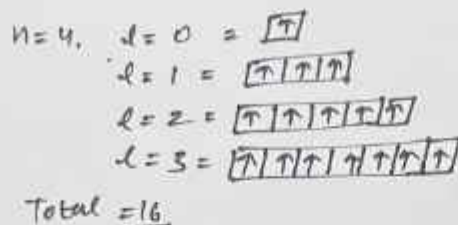 n=4, l=0 = ↑
l=1 = ↑ ↑ ↑
l=2 = ↑ ↑ ↑ ↑ ↑
l=3 = ↑ ↑ ↑ ↑ ↑ ↑ ↑
Total =16